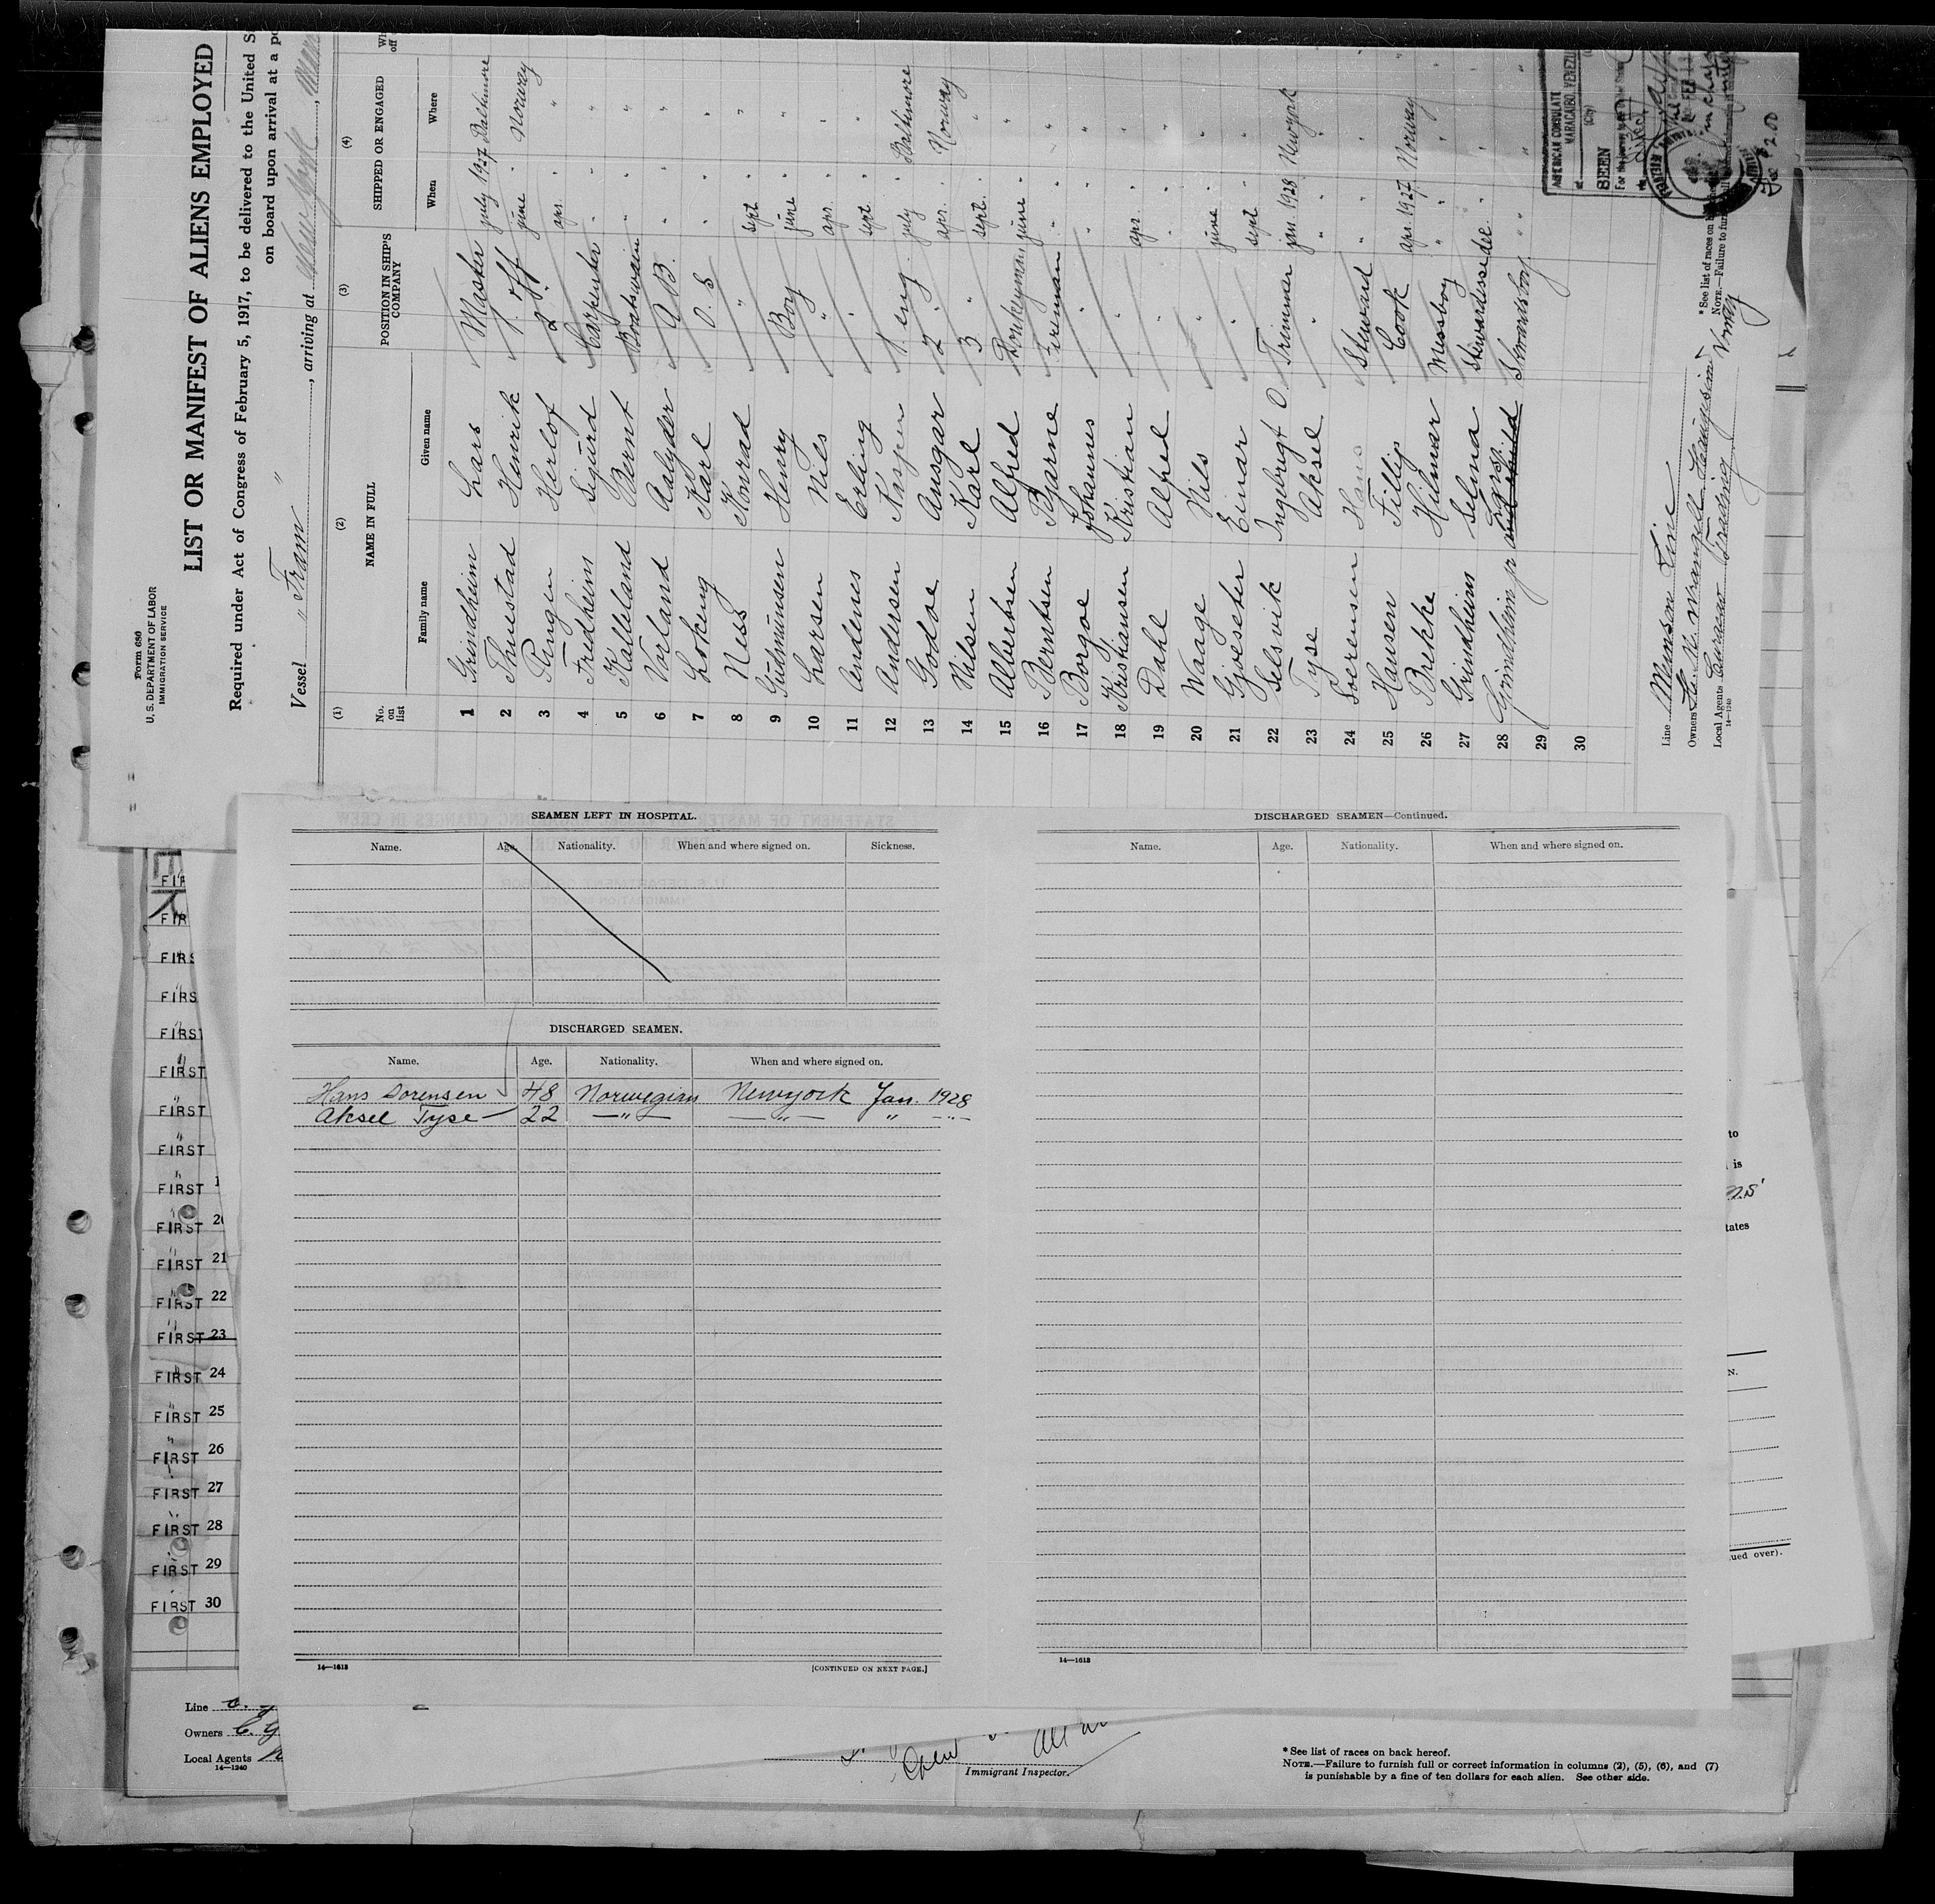 Form 680
U. S. DEPARTMENT OF LABOR
IMMIGRATION SERVICE
LIST OR MANIFEST OF ALIENS EMPLOYED
Required under Act of Congress of February 5, 1917, to be delivered to the United S
on board upon arrival at a po
Vessel " Fram " , arriving at
(1) (2) (3) (4)
No. on list NAME IN FULL POSITION IN SHIP'S COMPANY SHIPPED OR ENGAGED
Family name Given name When Where
1 Grindheim Lars Master july 1927 Baltimore
2 Thuestad Henrik 1. off june " Norway
3 Ringen Herlof 2. off apr. " "
4 Fredheim Sigurd Carpenter " " "
5 Kalleland Bernt Boatswain " " "
6 Vorland Aalyder A B. " " "
7 Lokeng Karl O. S " " "
8 Ness Konrad " sept " "
9 Gudmundsen Henry Boy june " "
10 Larsen Nils " apr. " "
11 Andenes Erling " sept " "
12 Andersen Kasper 1 eng. july " Baltimore
13 Godoe Ansgar 2 " apr. " Norway
14 Nilsen Karl 3 " sept. " "
15 Albertsen Alfred Donkeyman june " "
16 Berntsen Bjarne Fireman " " "
17 Borgoe Johannes " " " "
18 Kristiansen Kristian " apr. " "
19 Dahl Alfred " " " "
20 Waage Nils " june " "
21 Gjoeseter Einar " sept " "
22 Selsvik Ingebrigt O. Trimmer jan. 1928 Newyork
23 Tyse Aksel " " " "
24 Soerensen Hans Steward " " "
25 Hansen Fillip Cook apr. 1927 Norway
26 Brekke Hilmar Messboy " " "
27 Grindheim Selma Stewardess dec. " "
28 Grindheim jr Lars Stewardsboy " " "
29
30
Line Munson Line
Owners
Local Agents Curacao Trading
14—1240
*See list of races on b
NOTE.—Failure to fur
AMERICAN CONSULATE
MARACAIBO, VENEZU
(City)
SEEN
For the journey to the United States
SEAMEN LEFT IN HOSPITAL.
Name. Age. Nationality. When and where signed on. Sickness.
DISCHARGED SEAMEN.
Name. Age. Nationality. When and where signed on.
Hans Sorensen 48 Norwegian Newyork Jan. 1928
Aksel Tyse 22 —"— —"— " —"—
14—1613
[CONTINUED ON NEXT PAGE.]
DISCHARGED SEAMEN—Continued.
Name. Age. Nationality. When and where signed on.
14—1613
FIR
FIR
FIRS
FIRS
FIRST
FIRST
FIRST
FIRST
FIRST 1
FIRST 20
FIRST 21
FIRST 22
FIRST 23
FIRST 24
FIRST 25
FIRST 26
FIRST 27
FIRST 28
FIRST 29
FIRST 30
to
is
tates
ued over).
Line
Owners
Local Agents
14—1240
Immigrant Inspector.
* See list of races on back hereof.
NOTE.—Failure to furnish full or correct information in columns (2), (5), (6), and (7)
is punishable by a fine of ten dollars for each alien. See other side.